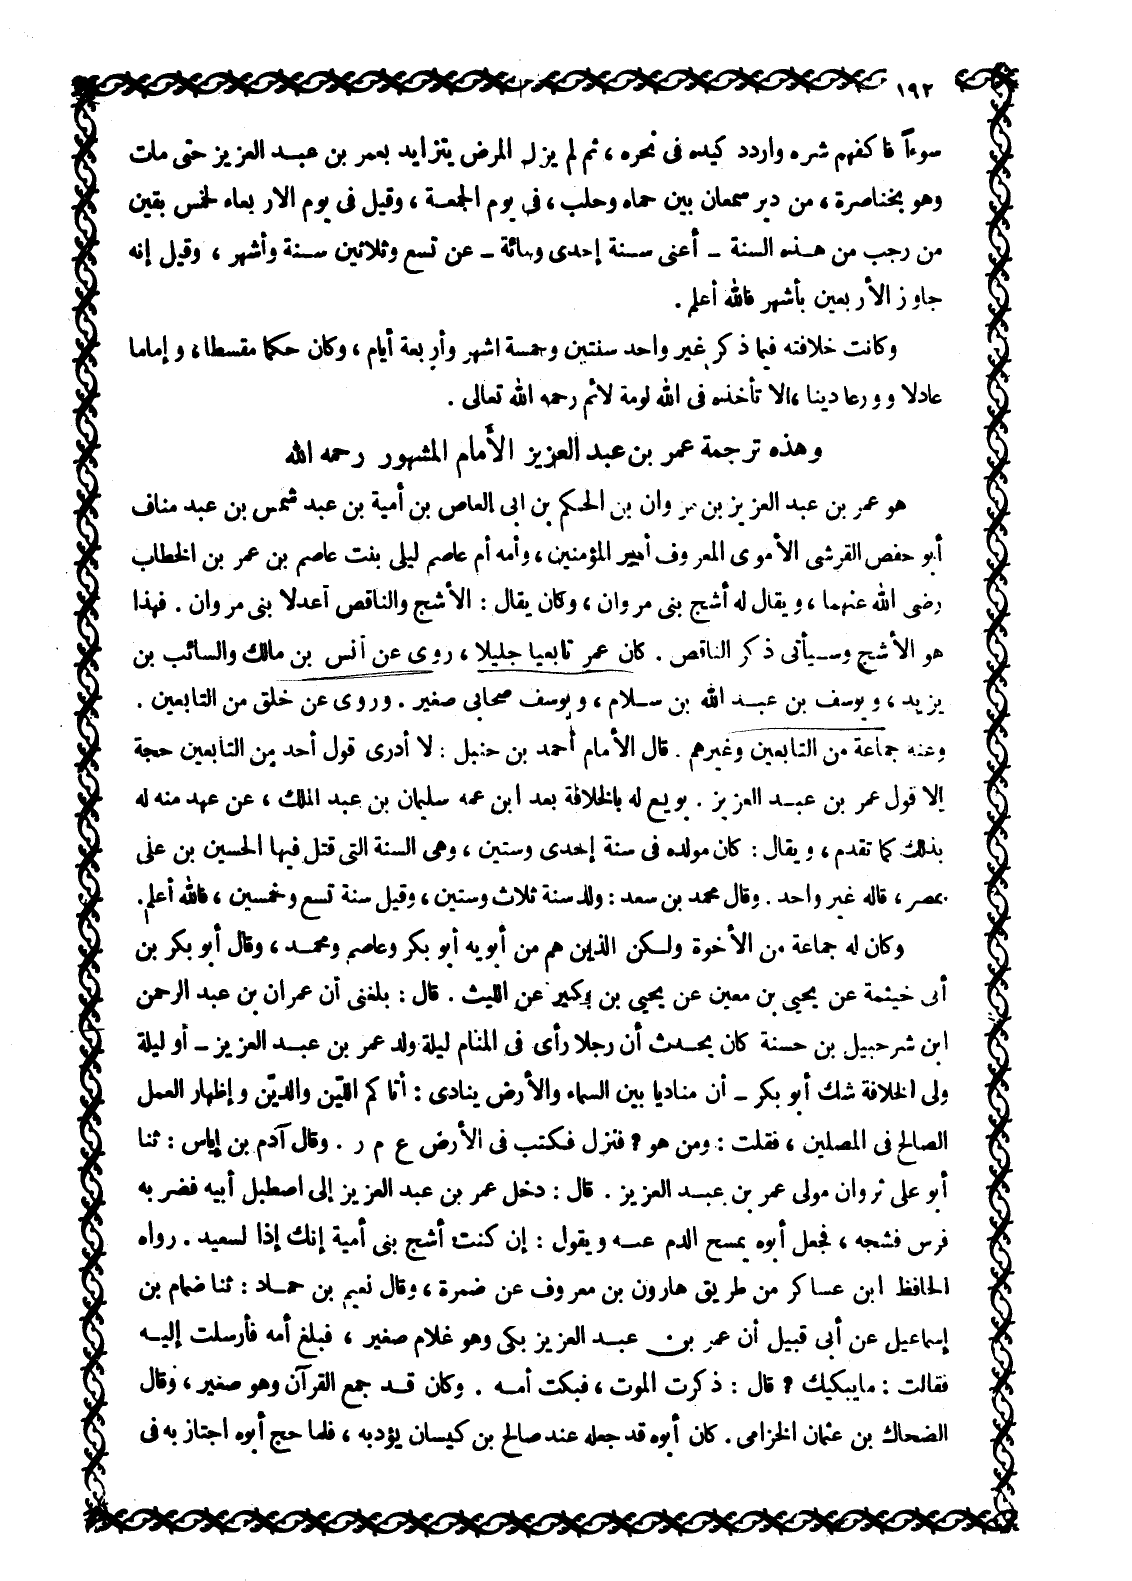 ١٩٢
سوءاً فاكفهم شره واردد كيده فى نحره ، ثم لم يزل المرض يتزايد بعمر بن عبد العزيز حتى مات
وهو بخناصرة ، من دير سمعان بين حماه وحلب ، فى يوم الجمعة ، وقيل فى يوم الاربعاء لخمس بقين
من رجب من هذه السنة ــ أعنى سنة إحدى ومائة ــ عن تسع وثلاثين سنة وأشهر ، وقيل إنه
جاوز الأربعين بأشهر فالله أعلم .
وكانت خلافته فيما ذكر غير واحد سنتين وخمسة اشهر وأربعة أيام ، وكان حكما مقسطا ، و إماما
عادلا وورعا دينا ، لا تأخذه فى الله لومة لائم رحمه الله تعالى .
وهذه ترجمة عمر بن عبد العزيز الأمام المشهور رحمه الله
هو عمر بن عبد العزيز بن مروان بن الحكم بن ابى العاص بن أمية بن عبد شمس بن عبد مناف
أبو حفص القرشى الأموى المعروف أمير المؤمنين ، وأمه أم عاصم ليلى بنت عاصم بن عمر بن الخطاب
رضى الله عنهما ، و يقال له أشج بنى مروان ، وكان يقال : الأشج والناقص أعدلا بنى مروان . فهذا
هو الأشج وسيأتى ذكر الناقص . كان عمر تابعيا جليلا ، روى عن أنس بن مالك والسائب بن
يزيد ، و يوسف بن عبد الله بن سلام ، و يوسف صحابى صغير . وروى عن خلق من التابعين .
وعنه جماعة من التابعين وغيرهم . قال الأمام أحمد بن حنبل : لا أدرى قول أحد من التابعين حجة
إلا قول عمر بن عبد العزيز . بويع له بالخلافة بعد ابن عمه سليمان بن عبد الملك ، عن عهد منه له
بذلك كما تقدم ، و يقال : كان مولده فى سنة إحدى وستين ، وهى السنة التى قتل فيها الحسين بن على
بمصر ، قاله غير واحد . وقال محمد بن سعد : ولد سنة ثلاث وستين ، وقيل سنة تسع وخمسين ، فالله أعلم .
وكان له جماعة من الأخوة ولكن الذين هم من أبويه أبو بكر وعاصم ومحمد ، وقال أبو بكر بن
أبى خيثمة عن يحيى بن معين عن يحيى بن بكير عن الليث . قال : بلغنى أن عمران بن عبد الرحمن
ابن شرحبيل بن حسنة كان يحدث أن رجلا رأى فى المنام ليلة ولد عمر بن عبد العزيز ــ أو ليلة
ولى الخلافة شك أبو بكر ــ أن مناديا بين السماء والأرض ينادى : أتاكم اللين والدين و إظهار العمل
الصالح فى المصلين ، فقلت : ومن هو ؟ فنزل فكتب فى الأرض ع م ر . وقال آدم بن إياس : ثنا
أبو على ثروان مولى عمر بن عبد العزيز . قال : دخل عمر بن عبد العزيز إلى اصطبل أبيه فضربه
فرس فشجه ، فجعل أبوه يمسح الدم عنه و يقول : إن كنت أشج بنى أمية إنك إذا لسعيد . رواه
الحافظ ابن عساكر من طريق هارون بن معروف عن ضمرة ، وقال نعيم بن حماد : ثنا ضمام بن
إسماعيل عن أبى قبيل أن عمر بن عبد العزيز بكى وهو غلام صغير ، فبلغ أمه فأرسلت إليه
فقالت : مايبكيك ؟ قال : ذكرت الموت ، فبكت أمه . وكان قد جمع القرآن وهو صغير ، وقال
الضحاك بن عثمان الخزامى . كان أبوه قد جعله عند صالح بن كيسان يؤدبه ، فلما حج أبوه اجتاز به فى